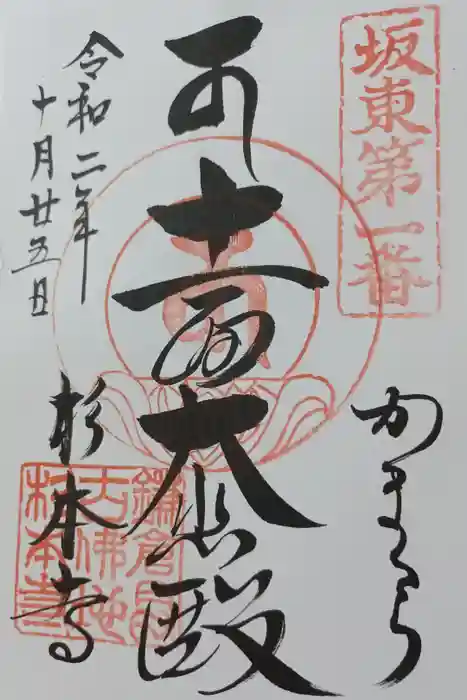 坂東第一番
かまくら
十一面大悲殿
令和二年
十月廿五日
杉本寺
鎌倉最
古佛地
杉本寺